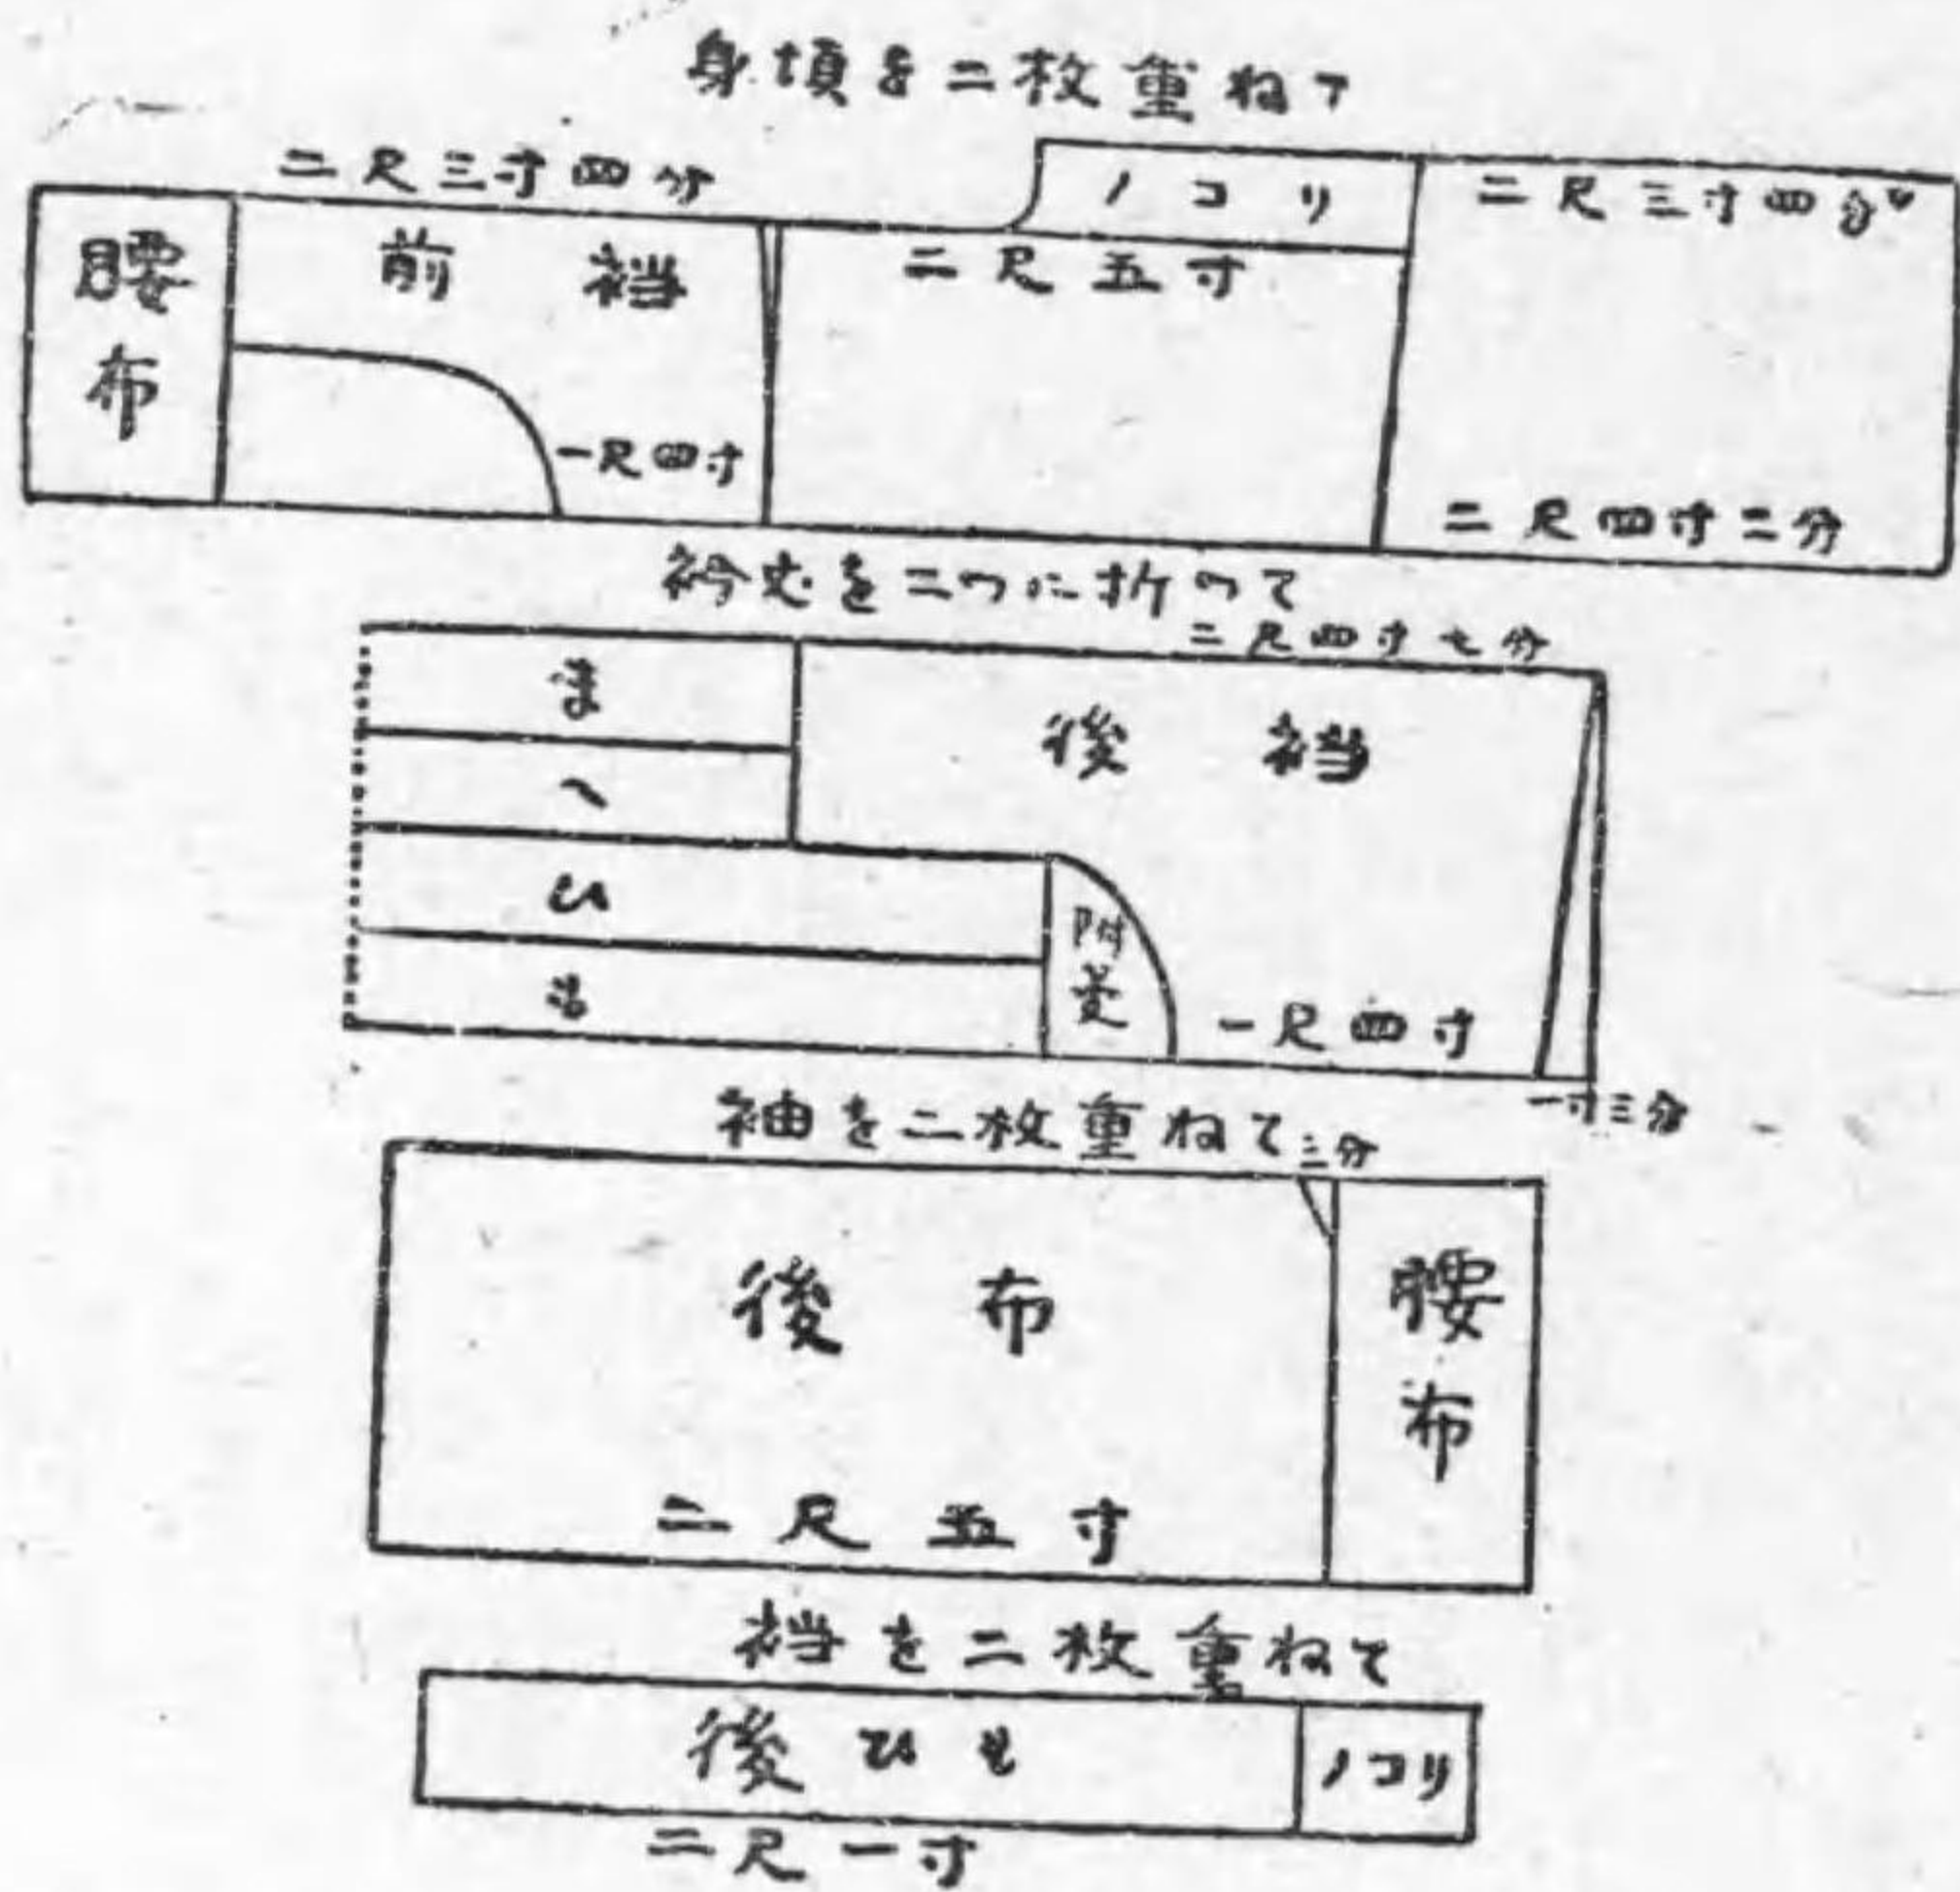 身頃を二枚重ねて
二尺三寸四分
ノコリ
二尺三寸四分
腰布
前襠
二尺五寸
一尺四寸
二尺四寸二分
を二つに折つて
二尺四寸七分
まへひも
後襠
附菱
一尺四寸
一寸三分
袖を二枚重ねて
三分
後布
腰布
二尺五寸
襠を二枚重ねて
後ひも
ノコリ
二尺一寸